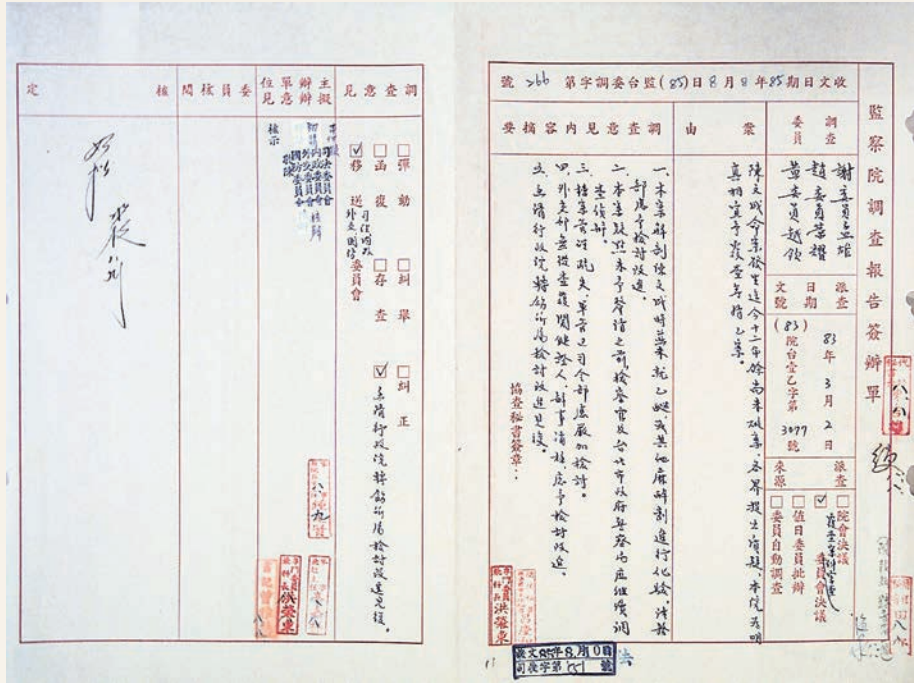 監察院調查報告簽辦單
收文日期85年8月8日(85)監台委調字第266號
調查委員
謝委員孟雄
趙委員榮耀
黃委員越欽
派查日期文號
83年3月2日
(83)院台壹乙字第3077號
派查來源
□院會決議
☑委員會決議
□值日委員批辦
□委員自動調查
案由
陳文成命案發生迄今十二年餘尚未破案,各界提出質疑,本院為明
真相宜予以查等情乙案。
調查意見內容摘要
一、本案解剖陳文成時並未就乙醚或其他麻醉劑進行化驗,法務
部應予檢討改進。
二、本案疑點未予發清之前檢察官及台北市政府警察局應繼續調
查偵辦。
三、檢警疏失,單警之司令部應嚴加檢討。
四、外交部無從查覆關鍵證人,部事消極,應予檢討改進。
五、函請行政院轉飭所屬檢討改進見復。
協查秘書簽章:
調查意見
□彈劾□糾舉□糾正
□函復□存查
☑移送
司法內政
外交國防委員會
☑函請行政院轉飭所屬檢討改進見復。
主辦單位擬辦意見
核示
委員核閱
核定
如擬
專門委員兼科長洪榮東
收文85年8月10日
司收字第251號